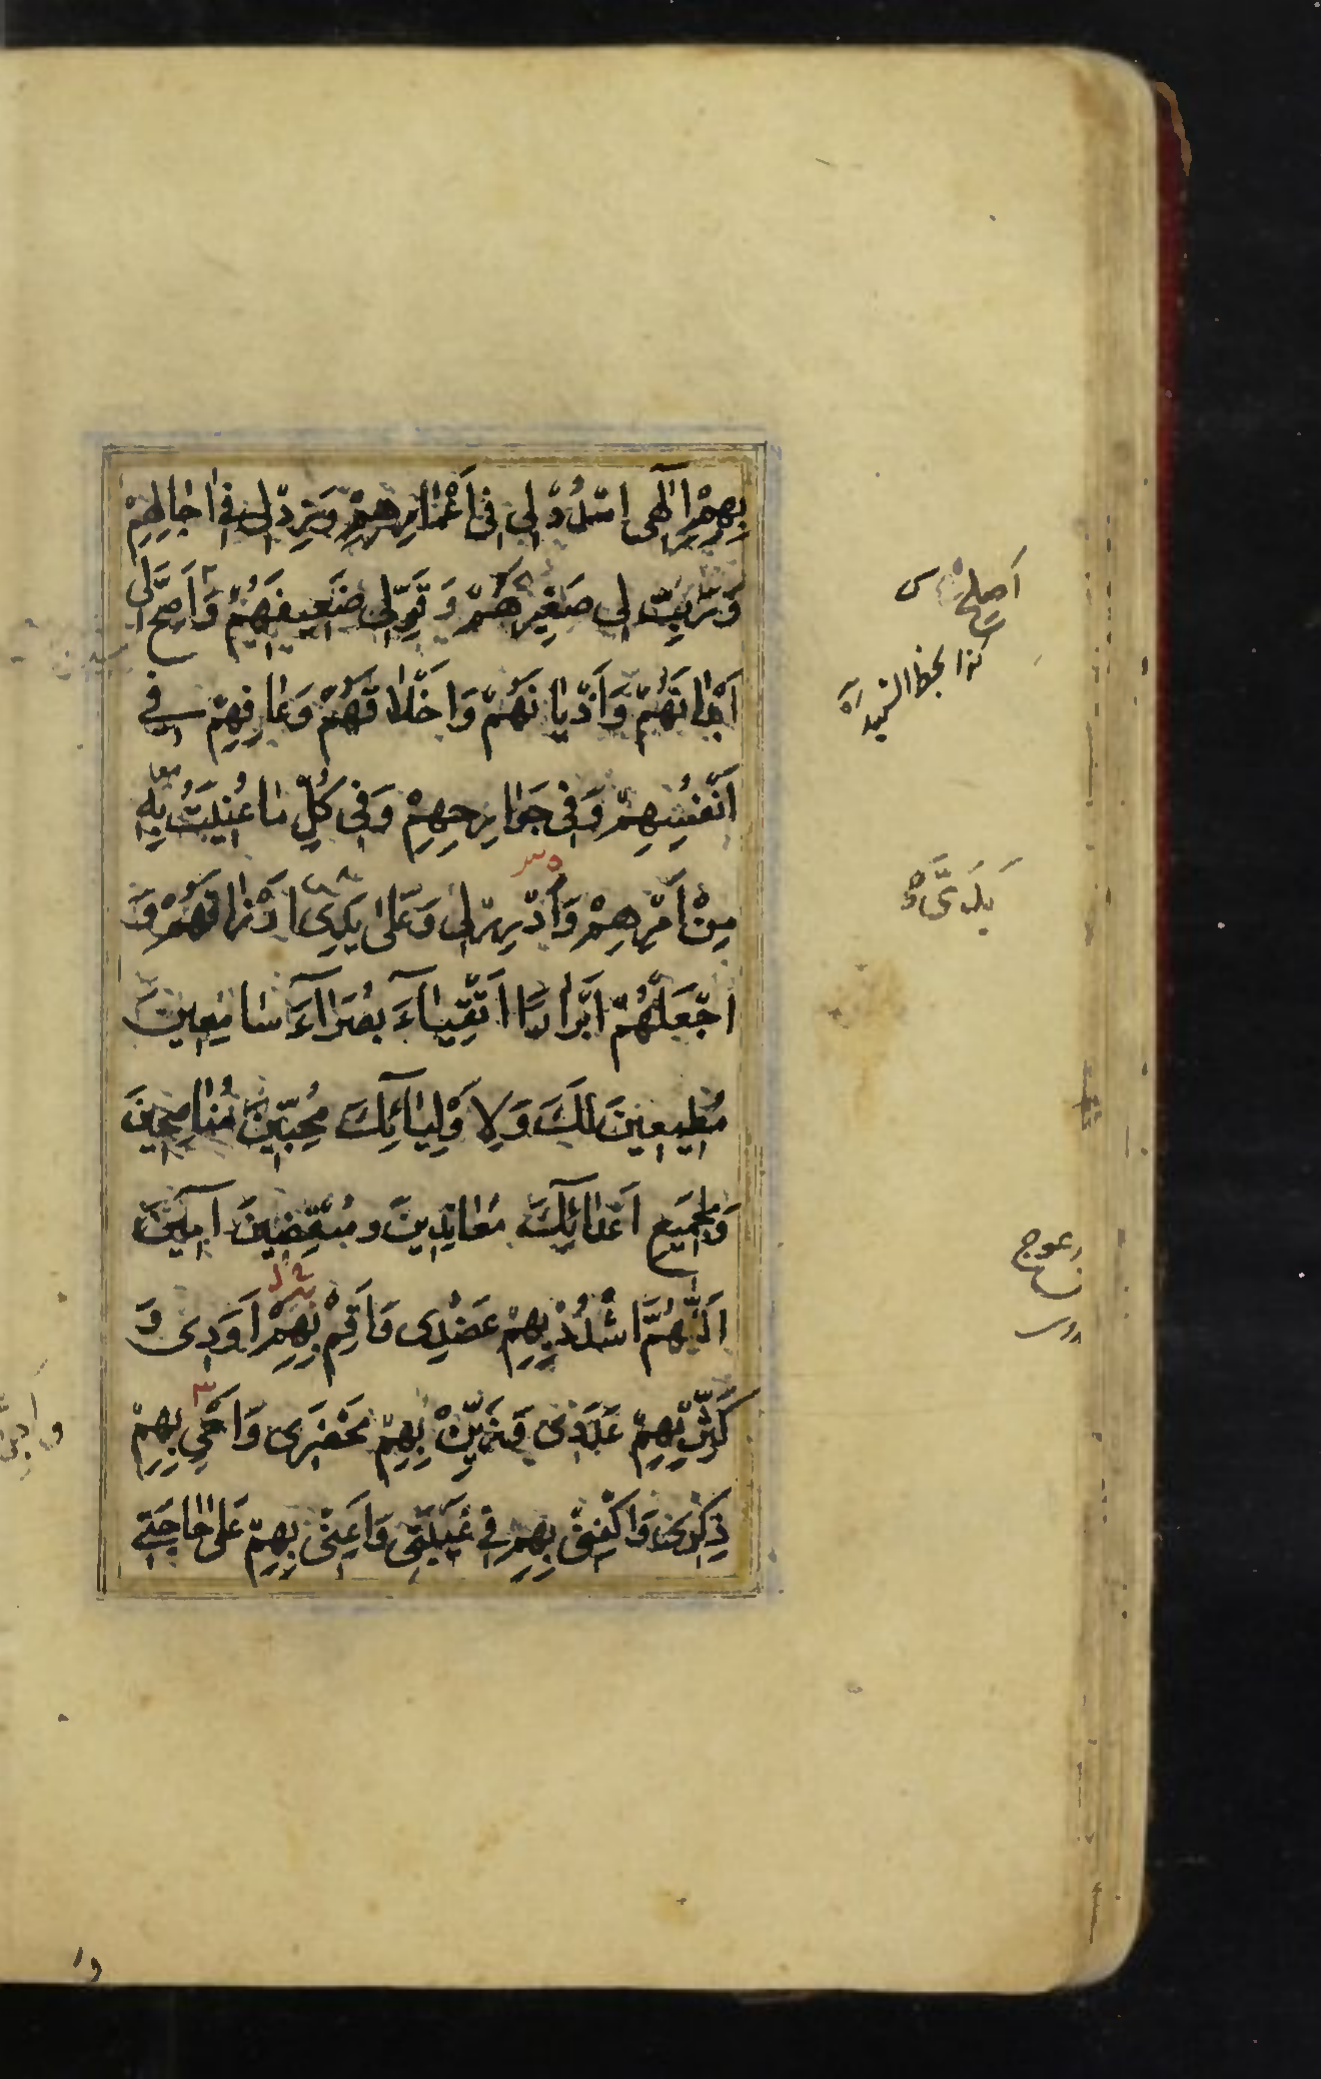 بِهِمْ اِلٰهی اُمْدُدْ لِی فِی اَعْمٰارِهِمْ وَزِدْ لِی فِی اٰجٰالِهِمْ
وَرَبِّ لِی صَغِیرَهُمْ وَقَوِّ لِی ضَعِیفَهُمْ وَاَصِحَّ لِی
اَبْدٰانَهُمْ وَاَدْیٰانَهُمْ وَاَخْلٰاقَهُمْ وَعٰافِهِمْ فِی
اَنْفُسِهِمْ وَفِی جَوٰارِحِهِمْ وَفِی كُلِّ مٰا عُنِیتُ بِهِ
مِنْ اَمْرِهِمْ وَاَدْرِرْ لِی وَعَلیٰ یَدِی اَرْزٰاقَهُمْ وَ
اجْعَلْهُمْ اَبْرٰارًا اَتْقِیٰاءَ بُصَرٰاءَ سٰامِعِینَ
مُطِیعِینَ لَكَ وَلِاَوْلِیٰائِكَ مُحِبِّینَ مُنٰاصِحِینَ
وَلِجَمِیعِ اَعْدٰائِكَ مُعٰانِدِینَ وَمُبْغِضِینَ اٰمِینَ
اَللّٰهُمَّ اشْدُدْ بِهِمْ عَضُدِی وَاَقِمْ بِهِمْ اَوَدِی وَ
كَثِّرْ بِهِمْ عَدَدِی وَزَیِّنْ بِهِمْ مَحْضَرِی وَاَحْیِ بِهِمْ
ذِكْرِی وَاكْفِنِی بِهِمْ فِی غَیْبَتِی وَاَعِنِّی بِهِمْ عَلیٰ حٰاجَتِی
اَصْلِحْ س
كذا بخط الشهید ره
یَدَیَّ
عوج